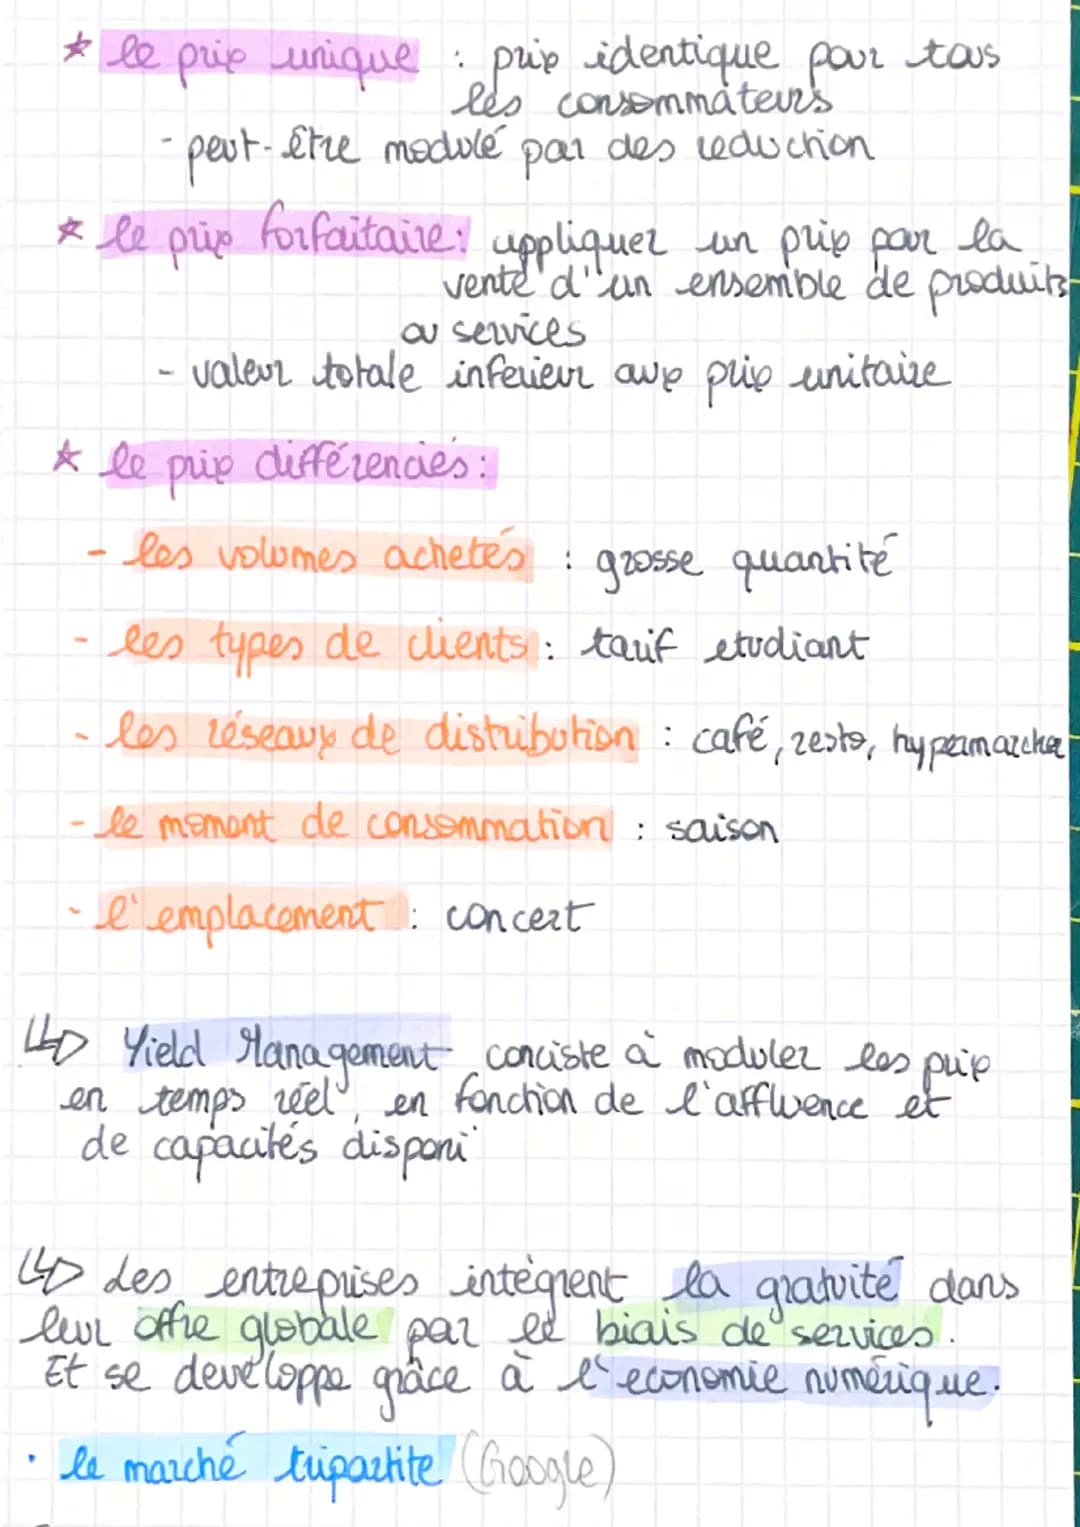 * le prix unique : prix identique pour tous
les consommateurs
- peut-être modulé par des reduction
* le prix forfaitaire : appliquer un prix par la
vente d'un ensemble de produits
ou services
- valeur totale inferieur aux prix unitaire
* le prix différenciés :
- les volumes achetés : grosse quantité
- les types de clients : tarif etudiant
- les réseaux de distribution : café, resto, hypermarcher
- le moment de consommation : saison
- l'emplacement : concert
Yield Management conciste à moduler les prix
en temps réel, en fonction de l'affluence et
de capacités disponi
Les entreprises intègrent la gratuité dans
leur offre globale par le biais de services.
Et se developpe grâce à l'economie numérique.
• le marché tripartite (Google)